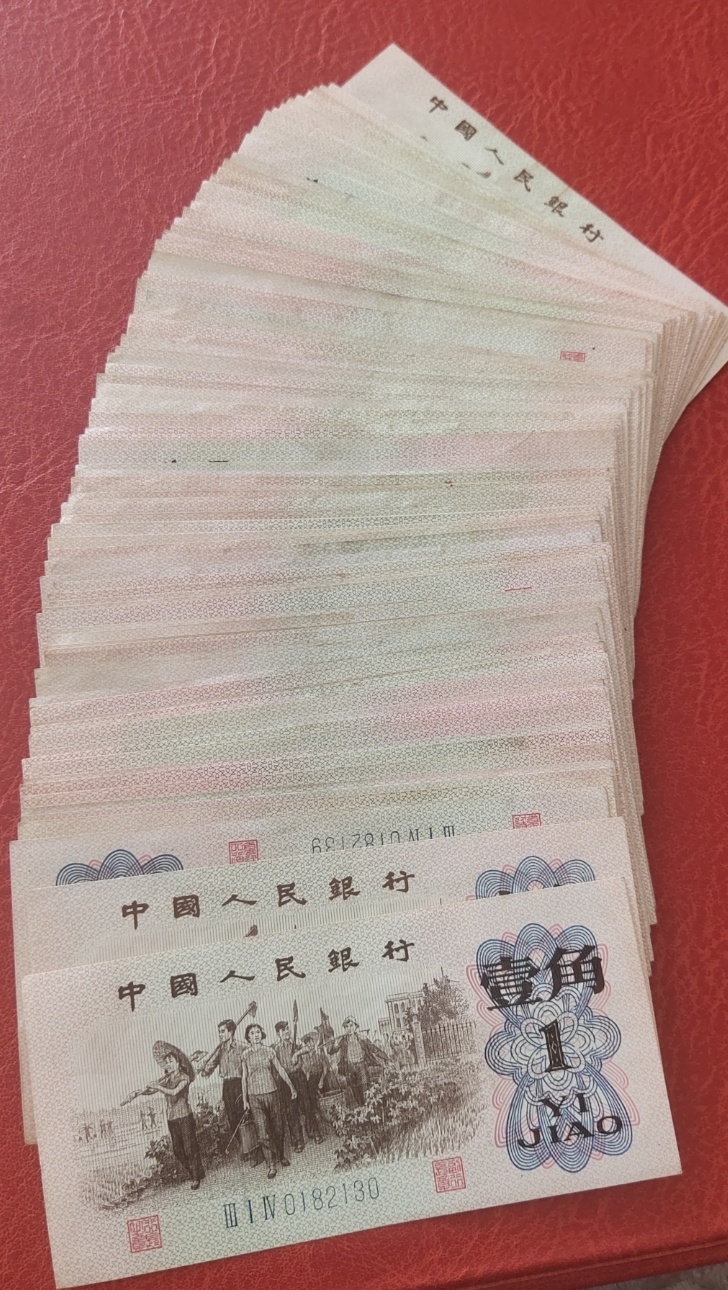 中國人民銀行
ⅢⅠⅣ0182139
中國人民銀行
中國人民銀行
壹角
1
YI
JIAO
ⅢⅠⅣ0182130